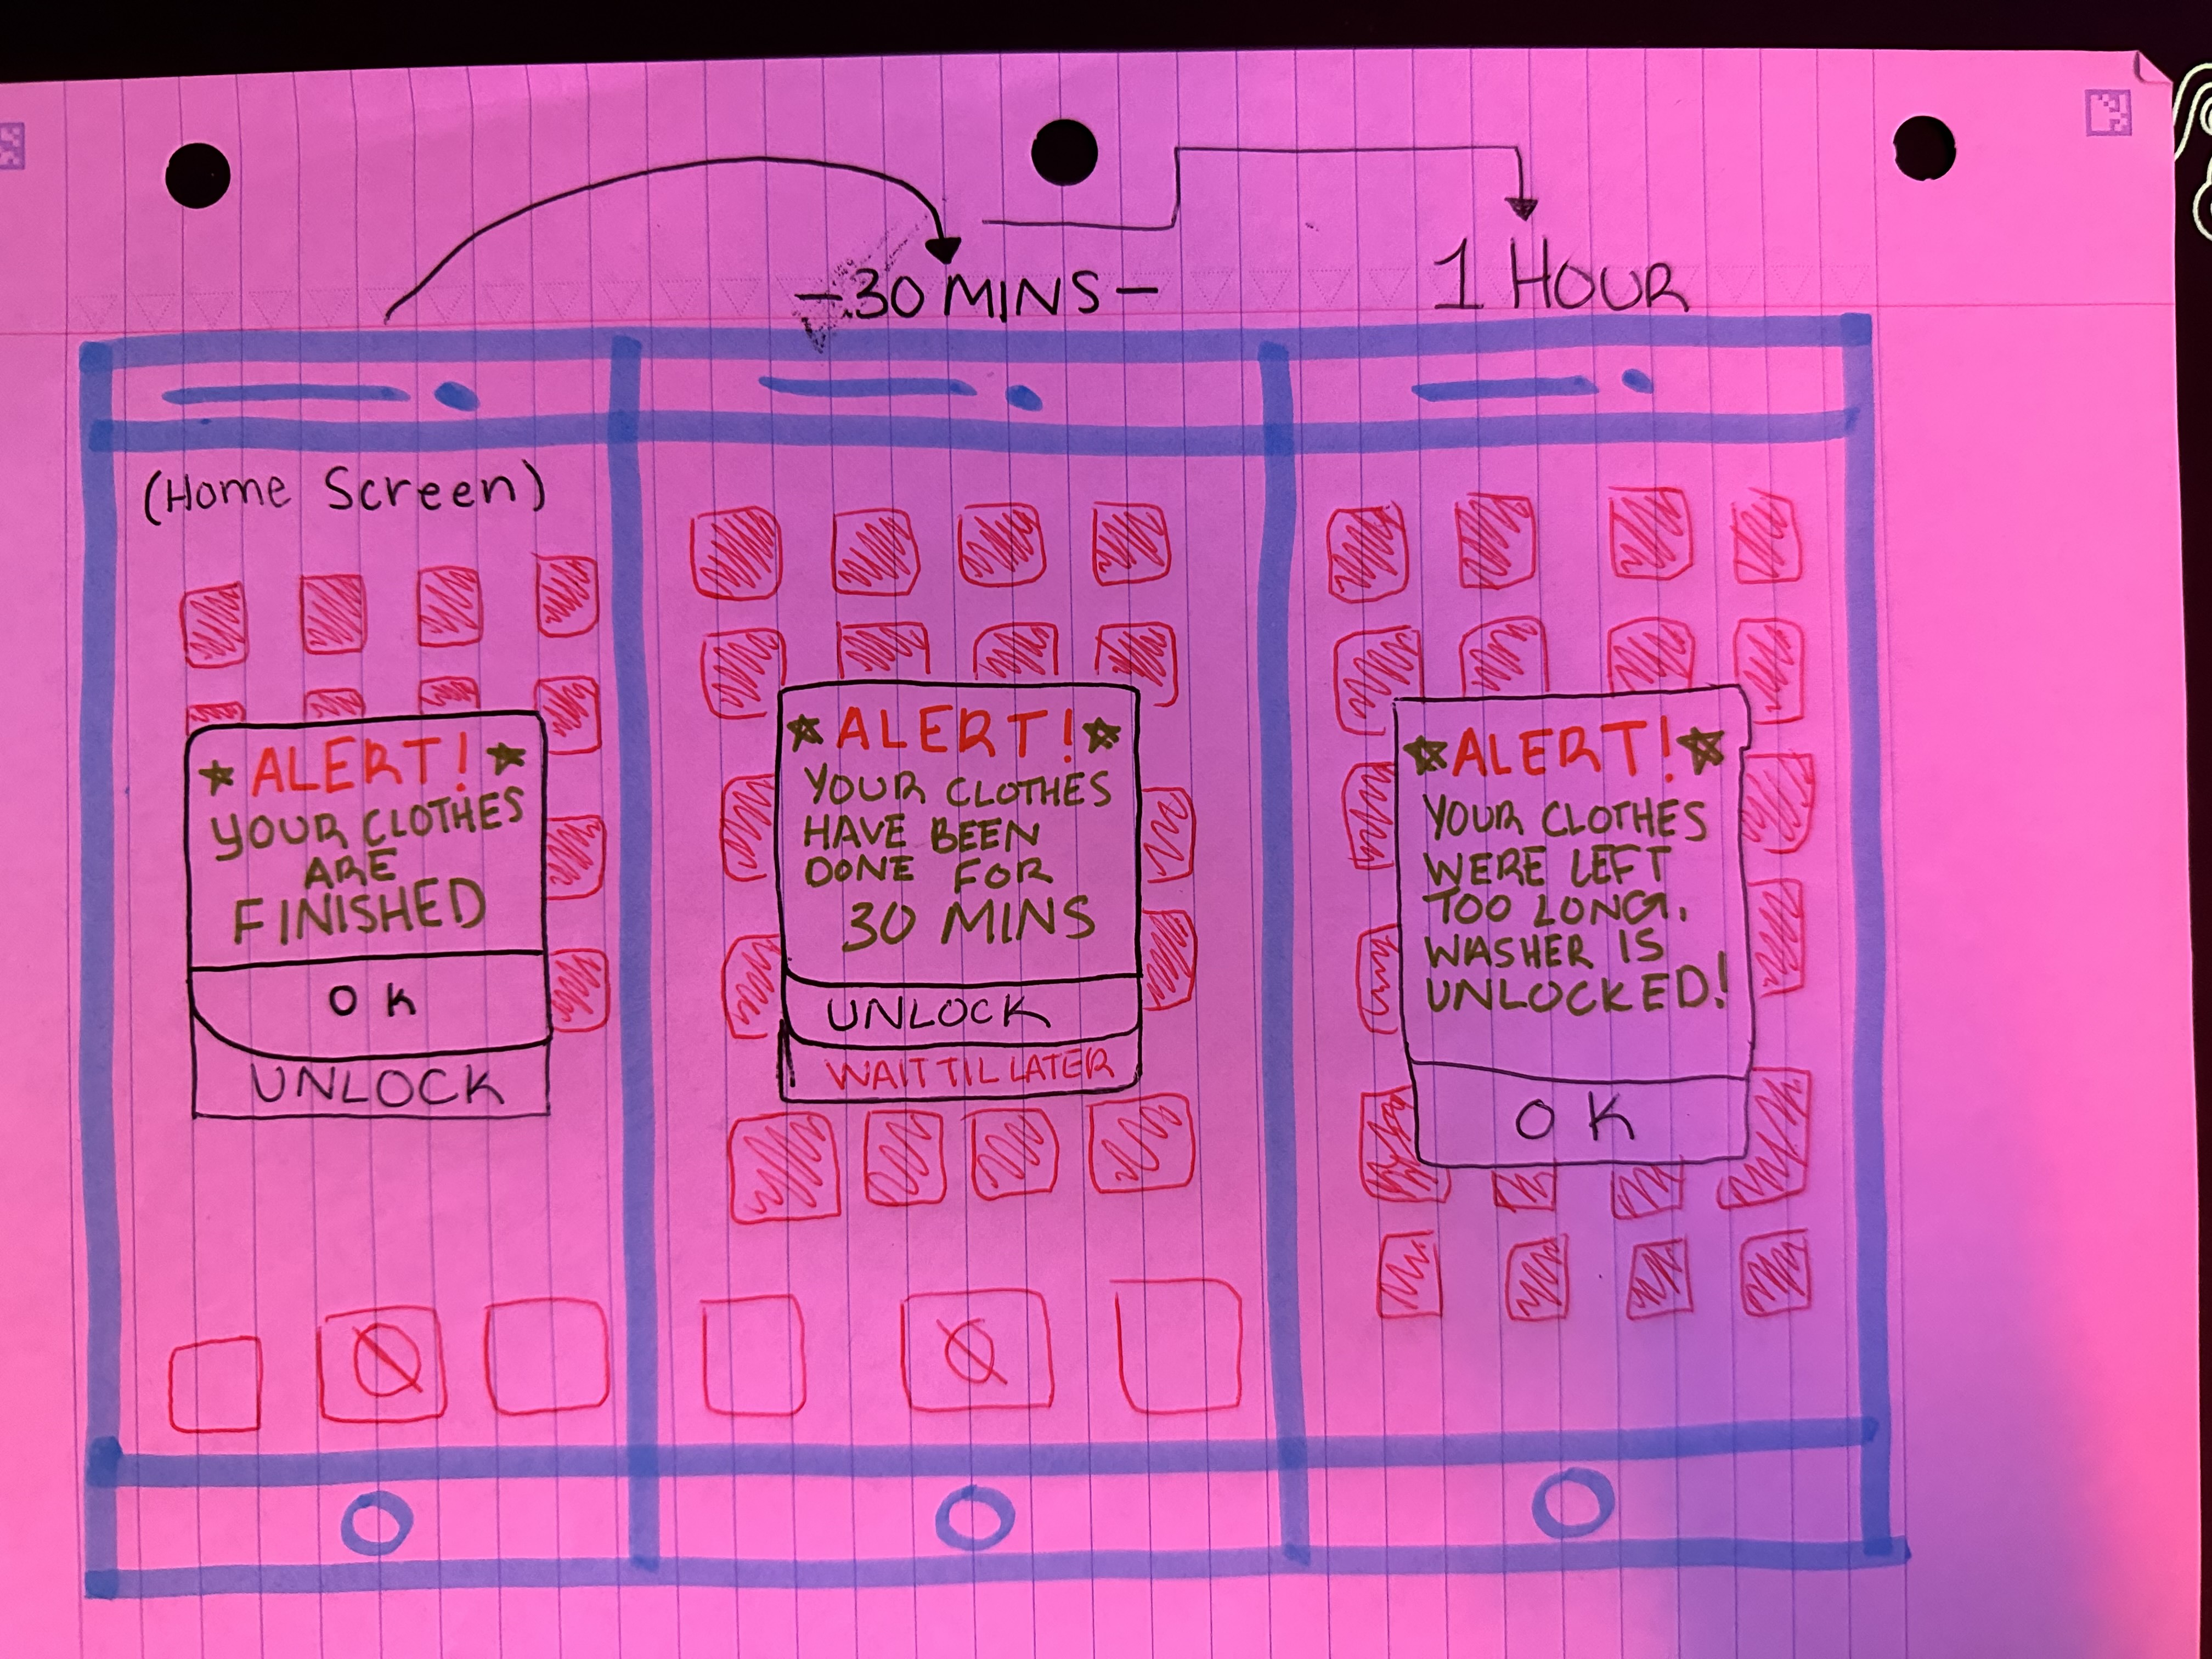 -30 MINS-
1 HOUR
(Home Screen)
ALERT!
YOUR CLOTHES
ARE
FINISHED
OK
UNLOCK
ALERT!
YOUR CLOTHES
HAVE BEEN
DONE FOR
30 MINS
UNLOCK
WAIT TIL LATER
ALERT!
YOUR CLOTHES
WERE LEFT
TOO LONG.
WASHER IS
UNLOCKED!
OK